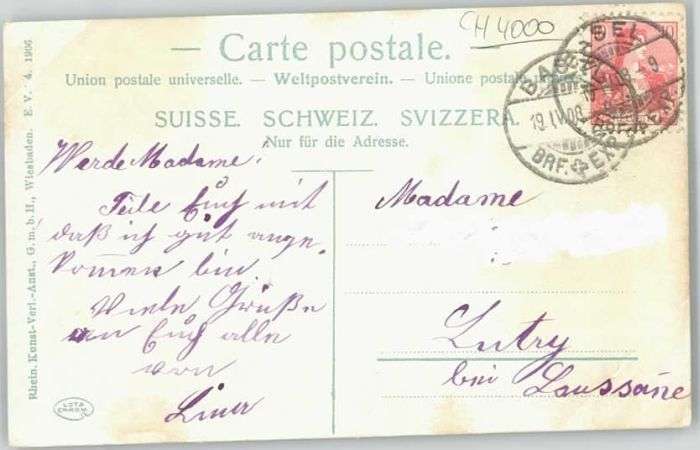 CH 4000
Carte postale.
Union postale universelle. — Weltpostverein. — Unione postale
SUISSE. SCHWEIZ. SVIZZERA.
Nur für die Adresse.
Werde Madame!
Teile Euch mit
daß ich gut ange-
kommen bin
Viele Grüße
an Euch alle
von
Madame
Lutry
bei Laussane
Rhein. Kunst-Verl.-Anst., G. m. b. H., Wiesbaden. E. V. 4. 1906
BASEL
19 IV 08
BRF. EXP.
10